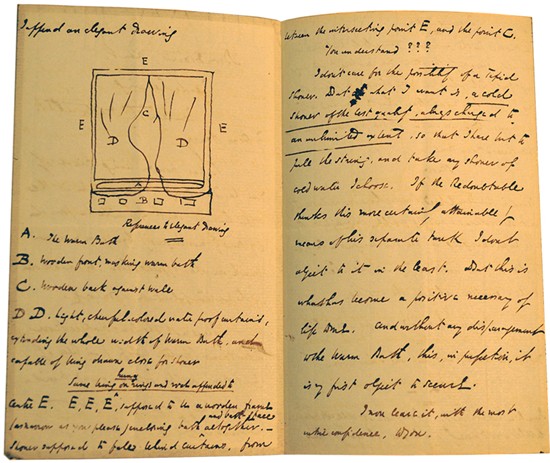 I append an elegant Drawing
E
C
E
E
D
D
A
B
References to Elegant Drawing
A. The Warm Bath
B. Wooden front, masking warm bath
C. Wooden back against wall
D D. Light, cheerful-colored waterproof curtains,
extending the whole width of Warm Bath, and
capable of being drawn close for shower
hung
Same being on rings and rods appended to
Centre E. E, E, E, supposed to be a wooden frame
and bath place
(as narrow as you please) enclosing bath altogether. —
Shower supposed to fall behind curtains, from
between the intersecting point E, and the point C.
You understand ???
I don't care for the of a Tepid
Shower. But what I want is, a cold
shower of the best quality, always charged to
an unlimited extent, so that I have but to
pull the string, and take any shower of
cold water I choose. If the Redoubtable
thinks this more certainly attainable by
means of his separate tank I don't
object to it in the least. But this is
what has become a positive necessary of
life to me. And without any disarrangement
to the Warm Bath, this, in perfection, it
is my first object to secure.
I now leave it, with the most
entire confidence, to you.